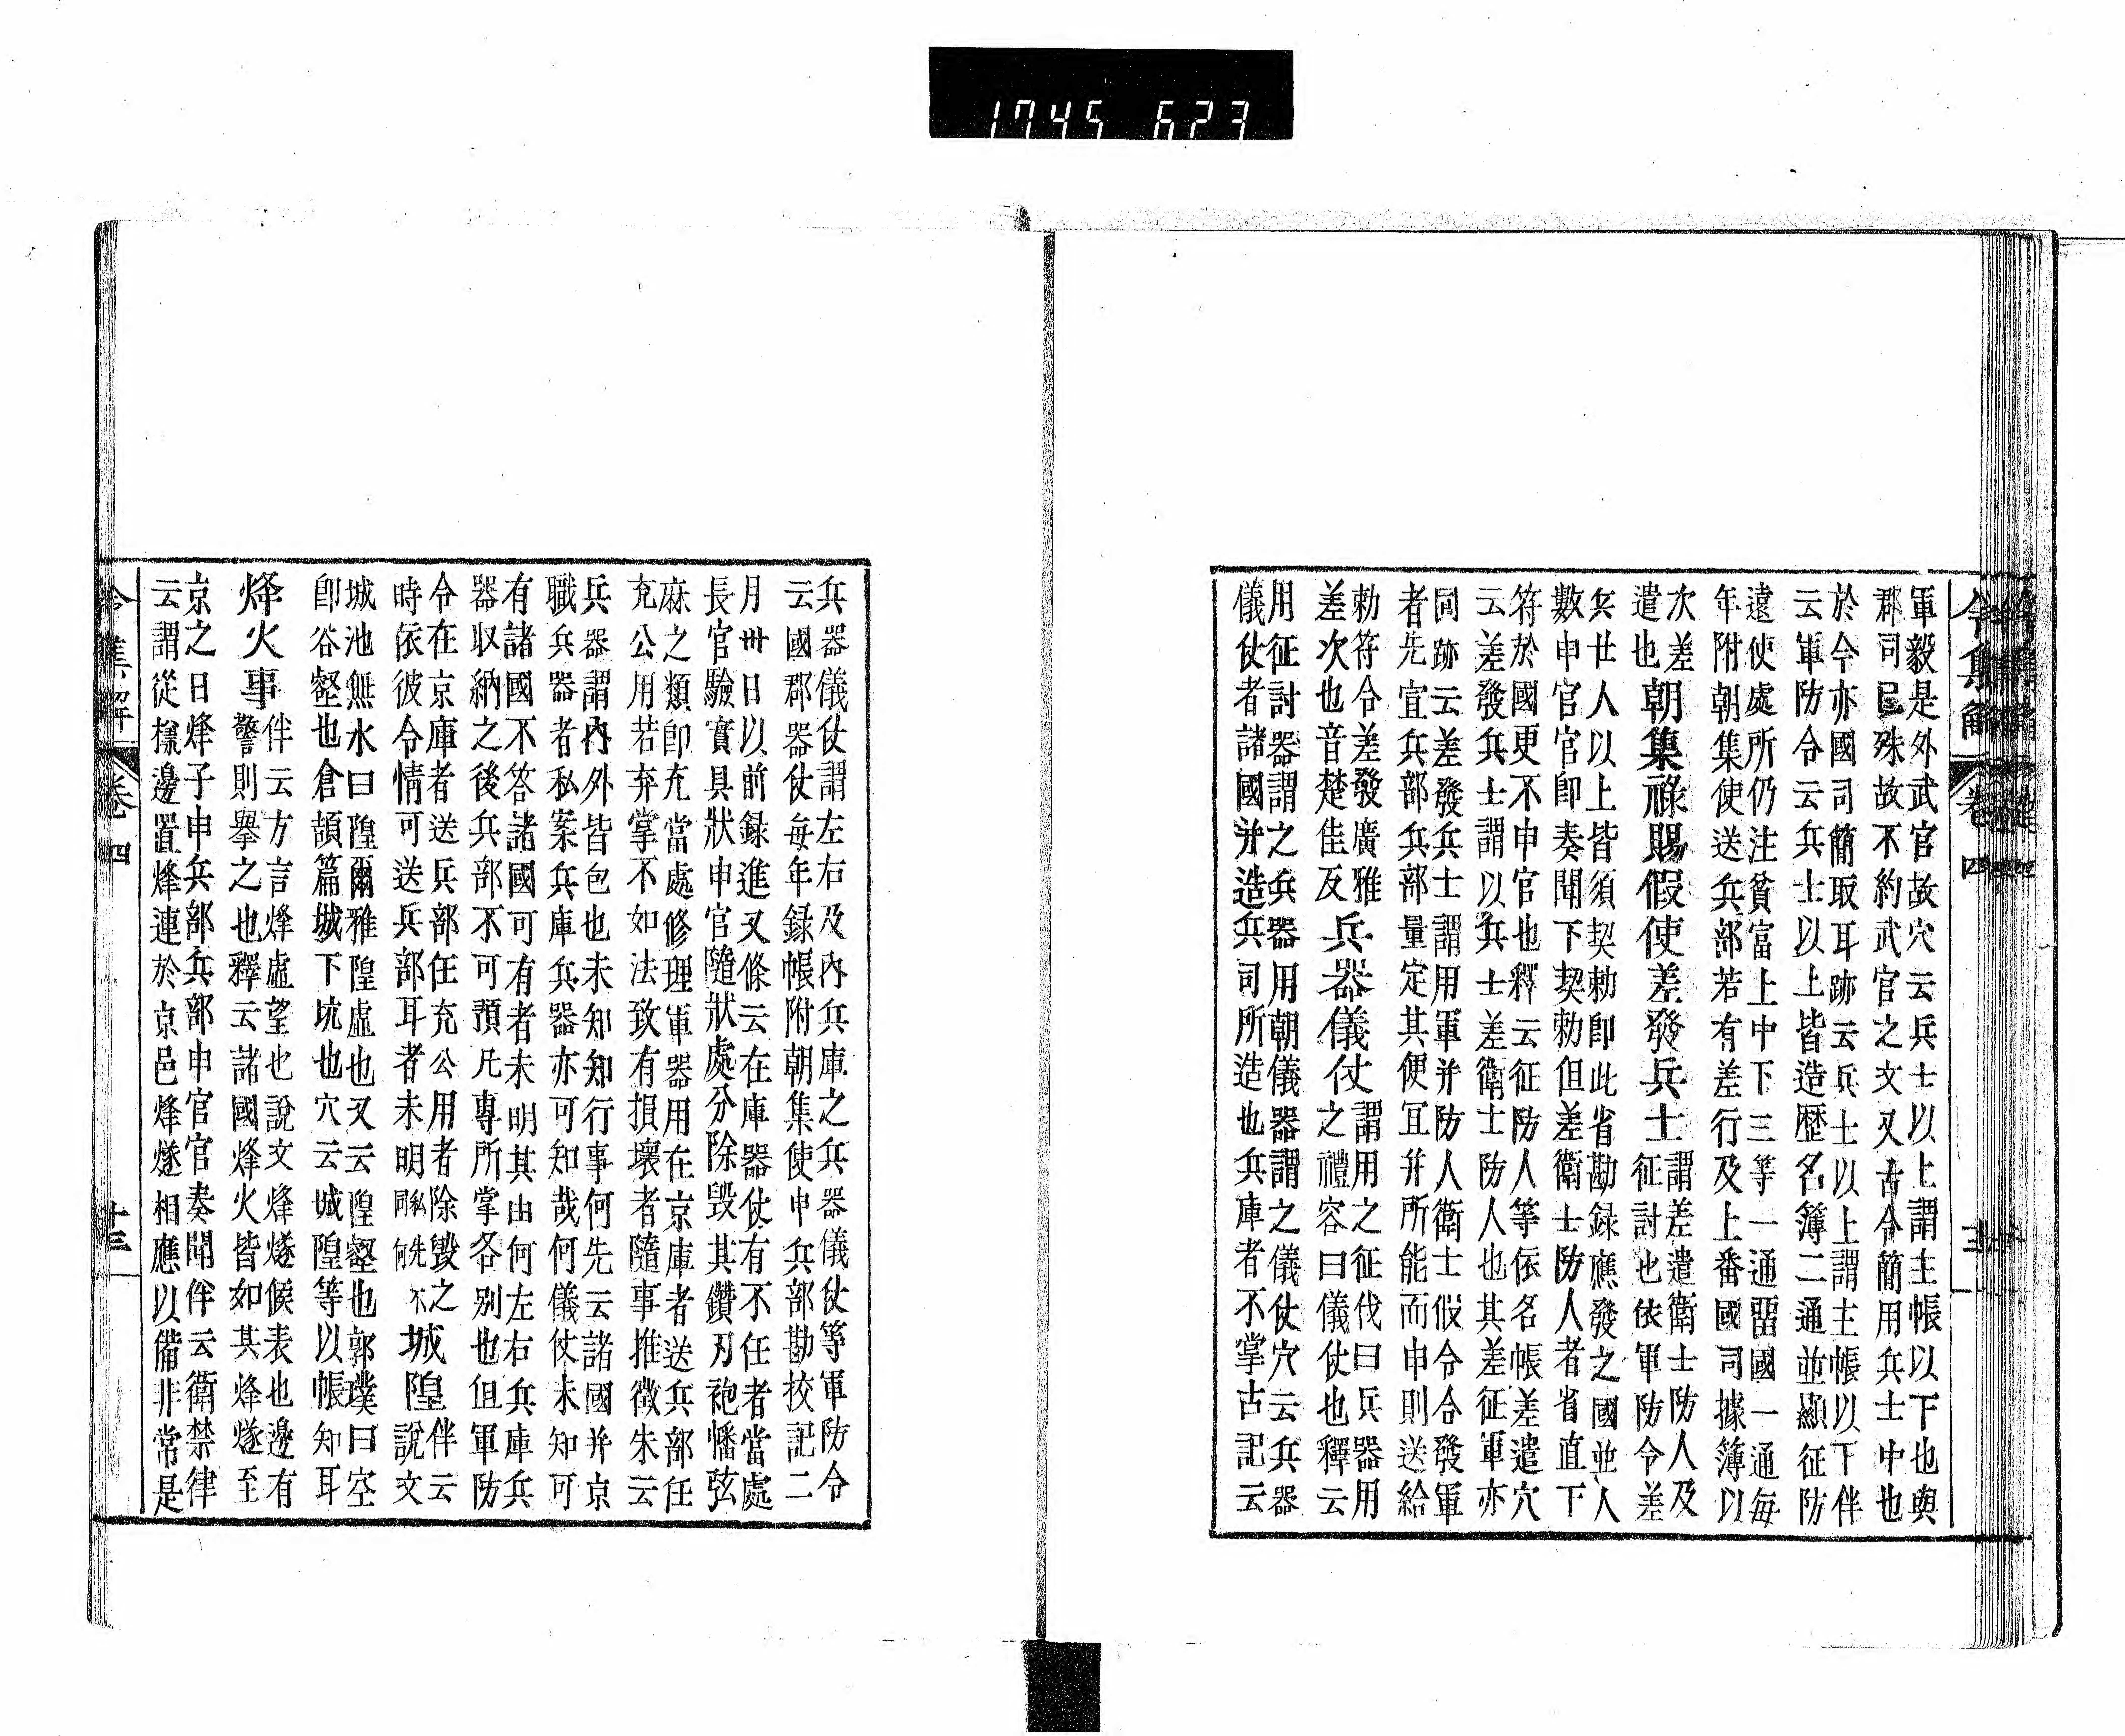 1745 623
令集解 卷四
軍毅是外武官故穴云兵士以上謂主帳以下也與
郡司已殊故不約武官之文又古令簡用兵士中也
於今亦國司簡取耳跡云兵士以上謂主帳以下伴
云軍防令云兵士以上皆造歷名簿二通並顯征防
遠使處所仍注貧富上中下三等一通留國一通每
年附朝集使送兵部若有差行及上番國司據簿以
次差
遣也
朝集祿賜假使差發兵士
謂差遣衛士防人及
征討也依軍防令差
兵廿人以上皆須契勅即此省勘録應發之國並人
數申官官即奏聞下契勅但差衛士防人者省直下
符於國更不申官也釋云征防人等依名帳差遣穴
云差發兵士謂以兵士差衛士防人也其差征軍亦
同跡云差發兵士謂用軍并防人衛士假令合發軍
者先宜兵部兵部量定其便冝并所能而申則送給
勅符令差發廣雅
差次也音楚佳反
兵器儀仗
謂用之征伐曰兵器用
之禮容曰儀仗也釋云
用征討器謂之兵器用朝儀器謂之儀仗穴云兵器
儀仗者諸國并造兵司所造也兵庫者不掌古記云
兵器儀仗謂左右及內兵庫之兵器儀仗等軍防令
云國郡器仗每年録帳附朝集使申兵部勘挍記二
月卅日以前録進又條云在庫器仗有不任者當處
長官驗實具狀申官隨狀處分除毀其鑽刃袍幡弦
麻之類即充當處修理軍器用在京庫者送兵部任
充公用若弃掌不如法致有損壞者隨事推徵朱云
兵器謂內外皆包也未知知行事何先云諸國并京
職兵器者私案兵庫兵器亦可知哉何儀仗未知可
有諸國不答諸國可有者未明其由何左右兵庫兵
器収納之後兵部不可預凡專所掌各別也但軍防
令在京庫者送兵部任充公用者除毀之
時依彼令情可送兵部耳者未明
城隍
伴云
說文
城池無水曰隍爾雅隍虛也又云隍壑也郭璞曰空
即谷壑也倉頡篇城下坑也穴云城隍等以帳知耳
烽火事
伴云方言烽虛望也說文烽燧候表也邊有
警則擧之也釋云諸國烽火皆如其烽燧至
京之日烽子申兵部兵部申官官奏聞伴云衛禁律
云謂從㨾邊置烽連於京邑烽燧相應以備非常是
令集解 卷四 十三